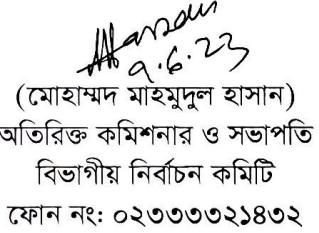 ৭.৬.২৩
(মোহাম্মদ মাহমুদুল হাসান)
অতিরিক্ত কমিশনার ও সভাপতি
বিভাগীয় নির্বাচন কমিটি
ফোন নং: ০২৩৩৩৩২১৪৩২